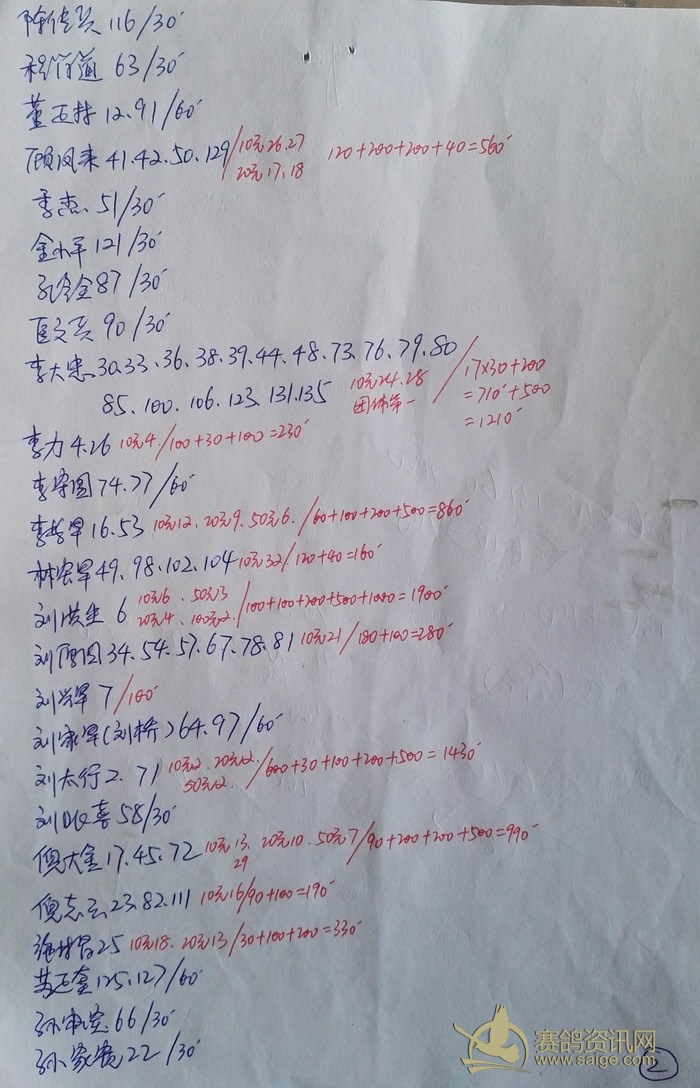 陈佳兴 116/30
程学道 63/30
董正林 12、91/60
顾凤来 41、42、50、129/10元26、27 120+200+200+40=560
20元17、18
李杰 51/30
金小平 121/30
孔令全 87/30
匡文兵 90/30
李大忠 30、33、36、38、39、44、48、73、76、79、80
85、100、106、123、131、135 10元24、28 / 17×30+200
团体第一 =710+500
=1210
李力 4、26 10元4、/100+30+100=230
李宇圆 74、77/60
李哲早 16、53 10元12、20元9、50元6、/60+100+200+500=860
林宏早 49、98、102、104 10元32/120+40=160
刘洪生 6 10元6、50元3 /100+100+200+500+1000=1900
20元4、100元2、
刘厚国 34、54、57、67、78、81 10元21/180+100=280
刘兴早 7/100
刘永早(刘桥)64、97/60
刘太行 2、71 10元2、20元2、/600+30+100+200+500=1430
50元2、
刘以喜 58/30
倪大金 17、45、72 10元13、20元10、50元7/90+200+200+500=990
29
倪志云 23、82、111 10元16/90+100=190
施林昌 25 10元18、20元13/30+100+200=330
苏正奎 125、127/60
孙宝宏 66/30
孙家宽 22/30
赛鸽资讯网
www.saige.com
2